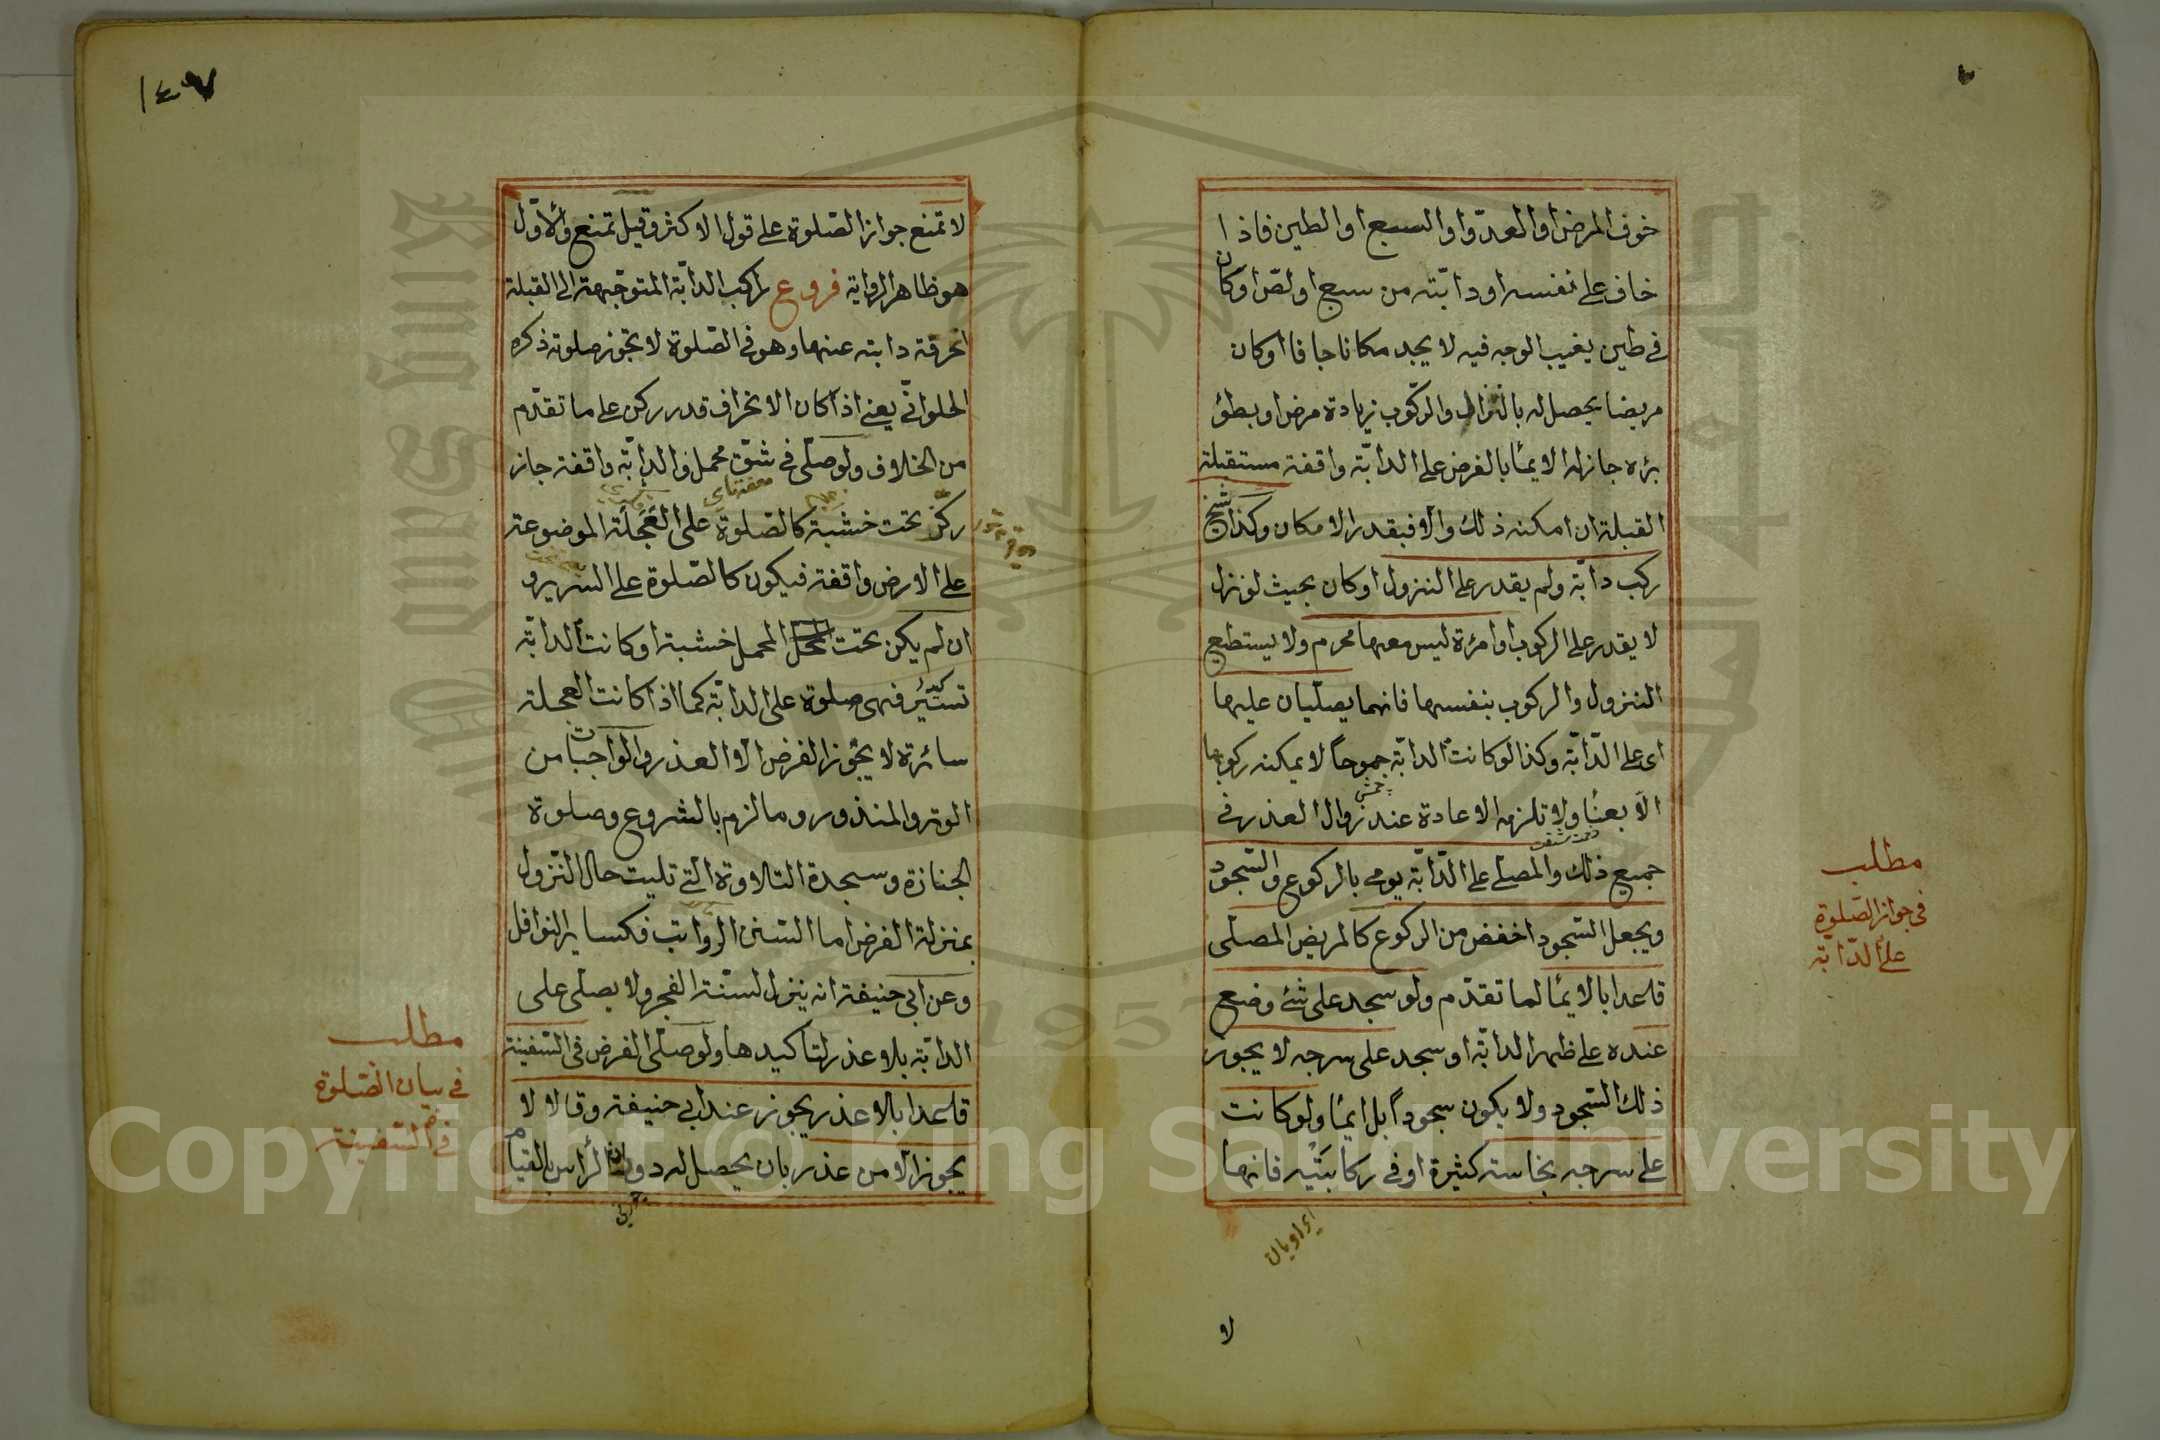 خوف المرض او العدوّ او السبع او الطين فاذا
خاف على نفسه او دابّته من سبع او لصّ او كان
فى طين يغيب الوجه فيه لا يجد مكانا جافا او كان
مريضا يحصل له بالنزول والركوب زيادة مرض او بطؤ
برءه جاز له الايمأ بالفرض على الدابّة واقفة مستقبلة
القبلة ان امكنه ذلك والّا فبقدر الامكان وكذا شيخ
ركب دابّة ولم يقدر على النزول او كان بحيث لو نزل
لا يقدر على الركوب او امرءة ليس معها محرم ولا يستطيع
النزول والركوب بنفسها فانهما يصلّيان عليها
اى على الدّابّة وكذا لو كانت الدابّة جموحاً لا يمكنه ركوبها
الّا بعنأ ولا تلزمه الاعادة عند زوال العذر فى
جميع ذلك والمصلى على الدّابّة يومى بالركوع والسّجود
ويجعل السّجود اخفض من الركوع كالمريض المصلى
قاعدا بالايمأ لما تقدّم ولو سجد على شئ وضع
عنده على ظهر الدابّة او سجد على سرجه لا يجوز
ذلك السّجود ولا يكون سجوداً بل ايمأ ولو كانت
على سرجه نجاسة كثيرة او فى ركابَيْه فانها
لا
مطلب
فى جواز الصّلوة
على الدّابّة
١٤٧
لا تمنع جواز الصّلوة على قول الاكثر وقيل تمنع والاوّل
هو ظاهر الرواية فروع راكب الدابّة المتوجّهة الى القبلة
انحرفة دابته عنها وهو فى الصّلوة لا تجوز صلوته ذكره
الحلوانّى يعنى اذا كان الانحراف قدر ركن على ما تقدّم
من الخلاف ولو صلّى فى شقّ محمل والدابّة واقفة جاز
ركّز تحت خشبة كالصّلوة على العَجَلَة الموضوعة
على الارض واقفة فيكون كالصّلوة على السّرير و
ان لم يكن تحت المحمل خشبة او كانت الدابّة
تسير فهى صلوة على الدابّة كما اذا كانت العجلة
سائرة لا يجوز الفرض الّا لعذر والواجبات من
الوتر والمنذور وما لزم بالشروع وصلوة
الجنازة وسجدة التلاوة الّتى تليت حال النّزول
بمنزلة الفرض اما السّنن الرواتب فكسائر النوافل
وعن ابى حنيفة انه ينزل لسنة الفجر ولا يصلى على
الدابّة بلا عذر لتاكيدها ولو صلّى الفرض فى السّفينة
قاعدا بلا عذر يجوز عند ابى حنيفة وقالا لا
يجوز الّا من عذر بان يحصل له دوران الرأس بالقيام
مطلب
فى بيان الصّلوة
فى السّفينة